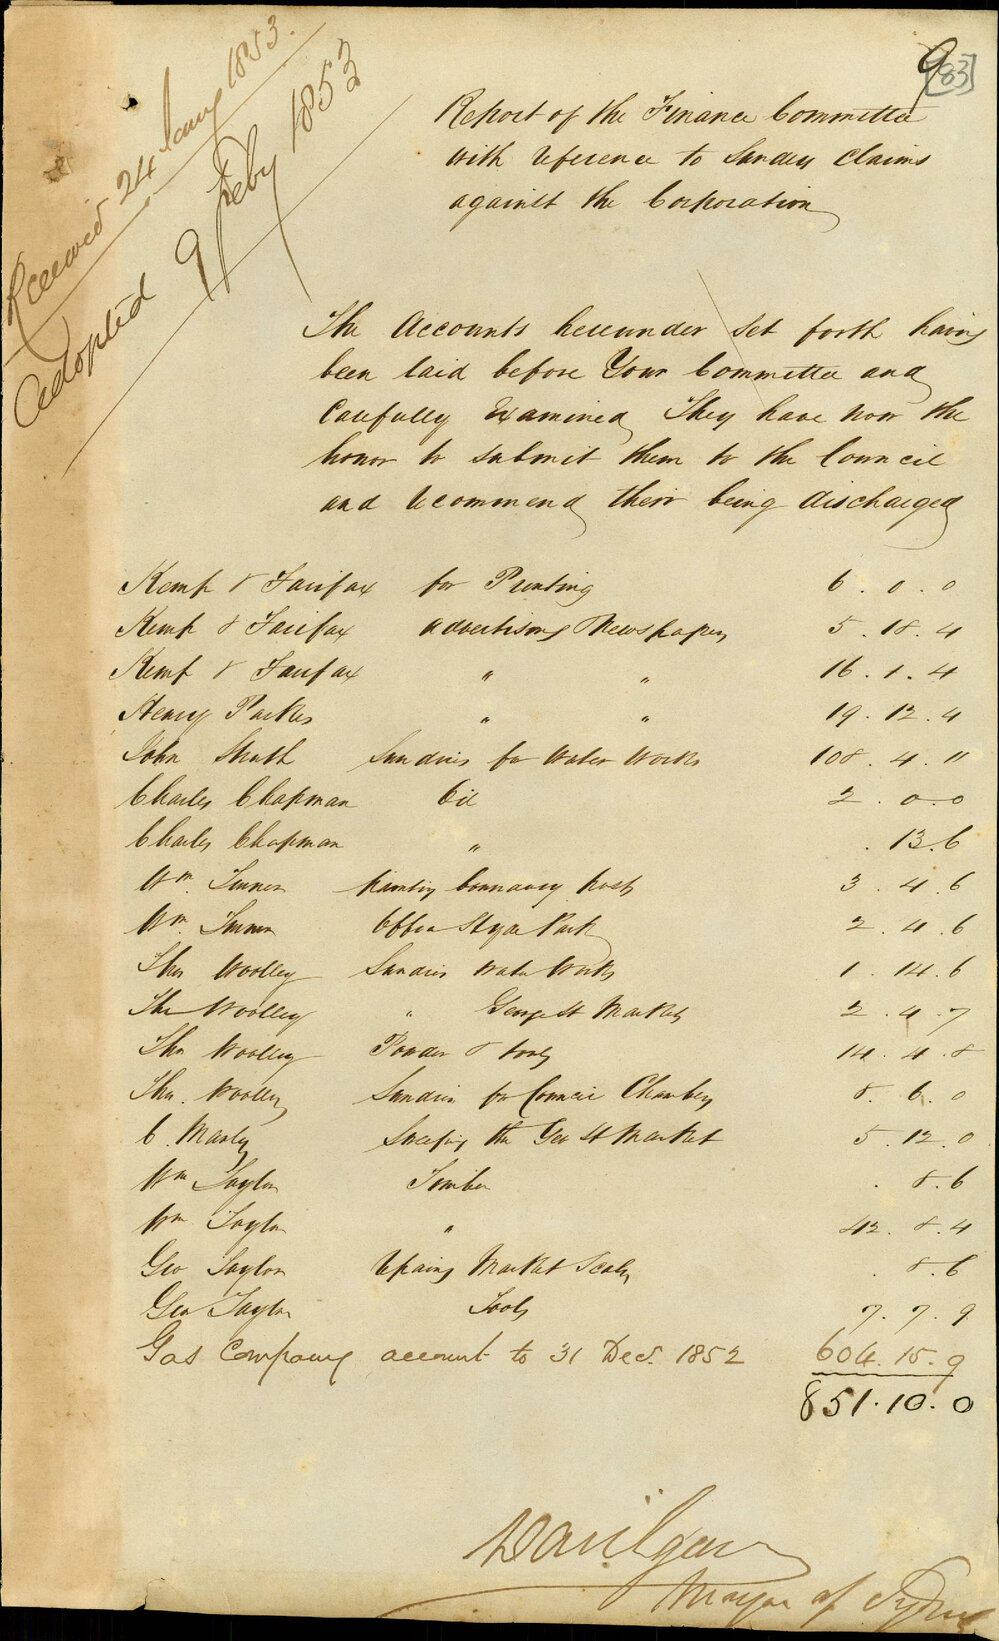 9
[83]
Received 24 Jany 1853.
Adopted 9 Feby 1853
Report of the Finance Committee
with reference to Sundry Claims
against the Corporation
The Accounts hereunder set forth having
been laid before Your Committee and
Carefully Examined They have now the
honor to submit them to the Council
and recommend their being discharged
Kemp & Fairfax for Printing 6 . 0 . 0
Kemp & Fairfax Advertising Newspapers 5 . 18 . 4
Kemp & Fairfax " " 16 . 1 . 4
Henry Parkes " " 19 . 12 . 4
John Struth Sundries for Water Works 108 . 4 . 11
Charles Chapman Oil 2 . 0 . 0
Charles Chapman " . 13 . 6
Wm. painting boundary posts 3 . 4 . 6
Wm. Office Hyde Park 2 . 4 . 6
Thos Woolley Sundries Water Works 1 . 14 . 6
Thos Woolley " George St Markets 2 . 4 . 7
Thos Woolley Powder & tools 14 . 4 . 8
Thos. Woolley Sundries for Council Chambers 8 . 6 . 0
C. Sweeping the Geo St Market 5 . 12 . 0
Wm Taylor Timber . 8 . 6
Wm Taylor " 42 . 8 . 4
Geo Taylor repairing Market Scales . 8 . 6
Geo Taylor Tools 7 . 7 . 9
Gas Company account to 31 Decr. 1852 604 . 15 . 9
851 . 10 . 0
Mayor of Sydney